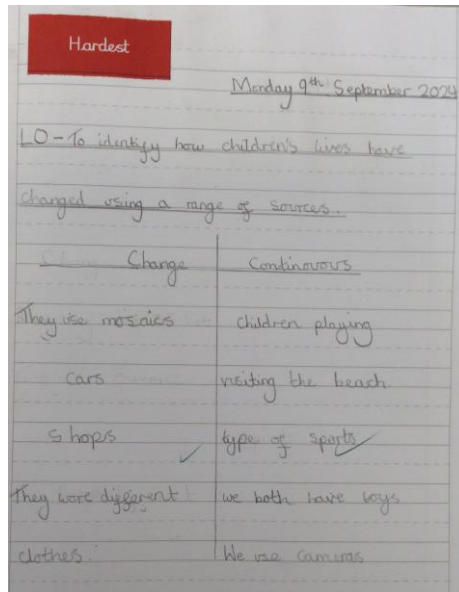 Hardest
Monday 9th September 2024
LO - To identify how children's lives have
changed using a range of sources.
Change Continovous
They use mosaics children playing
cars visiting the beach
shops type of sports
They wore different we both have toys
clothes. We use cameras